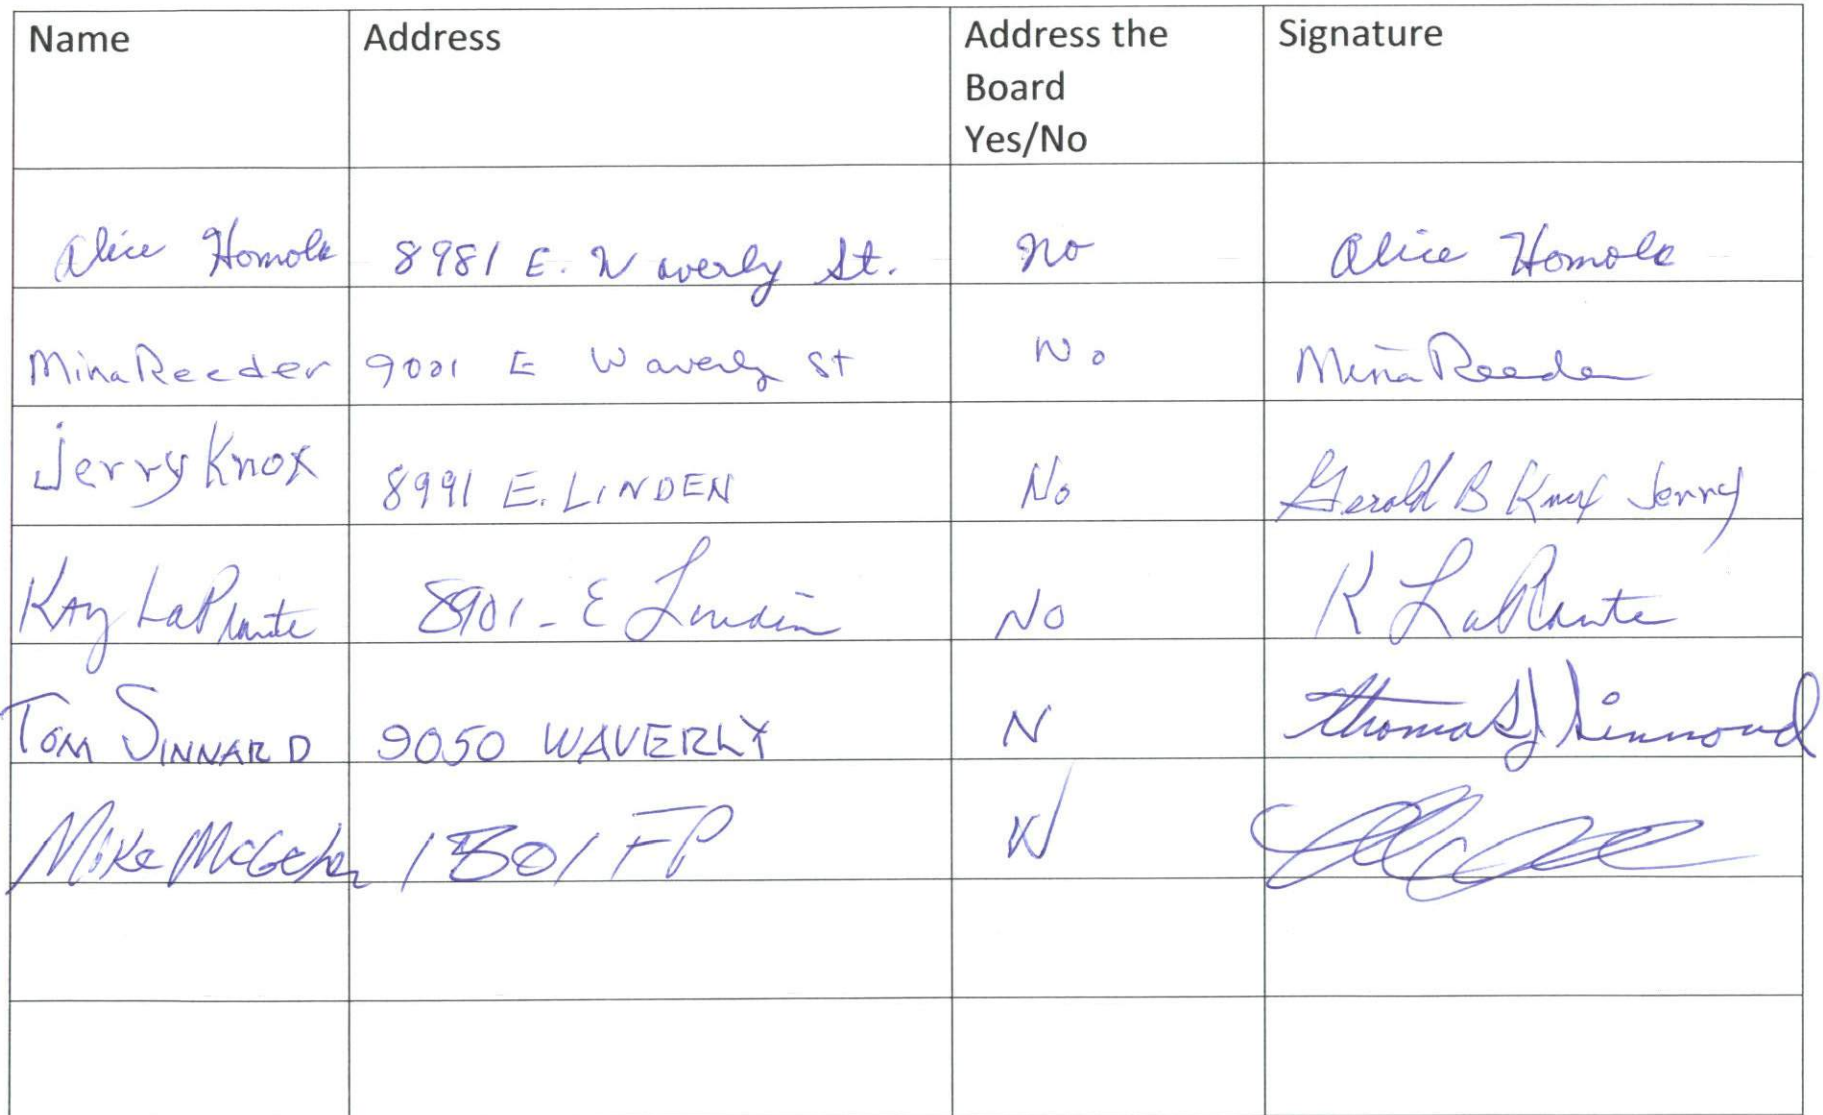 Name Address Address the Signature
Board
Yes/No
Alice Homola 8981 E. Waverly St. No Alice Homola
Mina Reeder 9001 E Waverly St No Mina Reeder
Jerry Knox 8991 E. LINDEN No Gerald B Knox Jerry
Kay LaPlante 8901 - E Linden No K LaPlante
TOM SINNARD 9050 WAVERLY N Thomas J Sinnard
Mike McGehee 1301 FP N